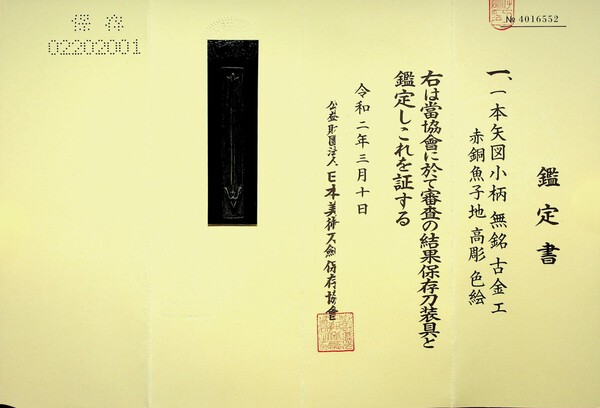 鑑定書
一、一本矢図小柄 無銘 古金工
赤銅魚子地 高彫 色絵
右は當協會に於て審査の結果保存刀装具と
鑑定しこれを証する
令和二年三月十日
公益財団法人 日本美術刀剣保存協會
№ 4016552
保存
02202001